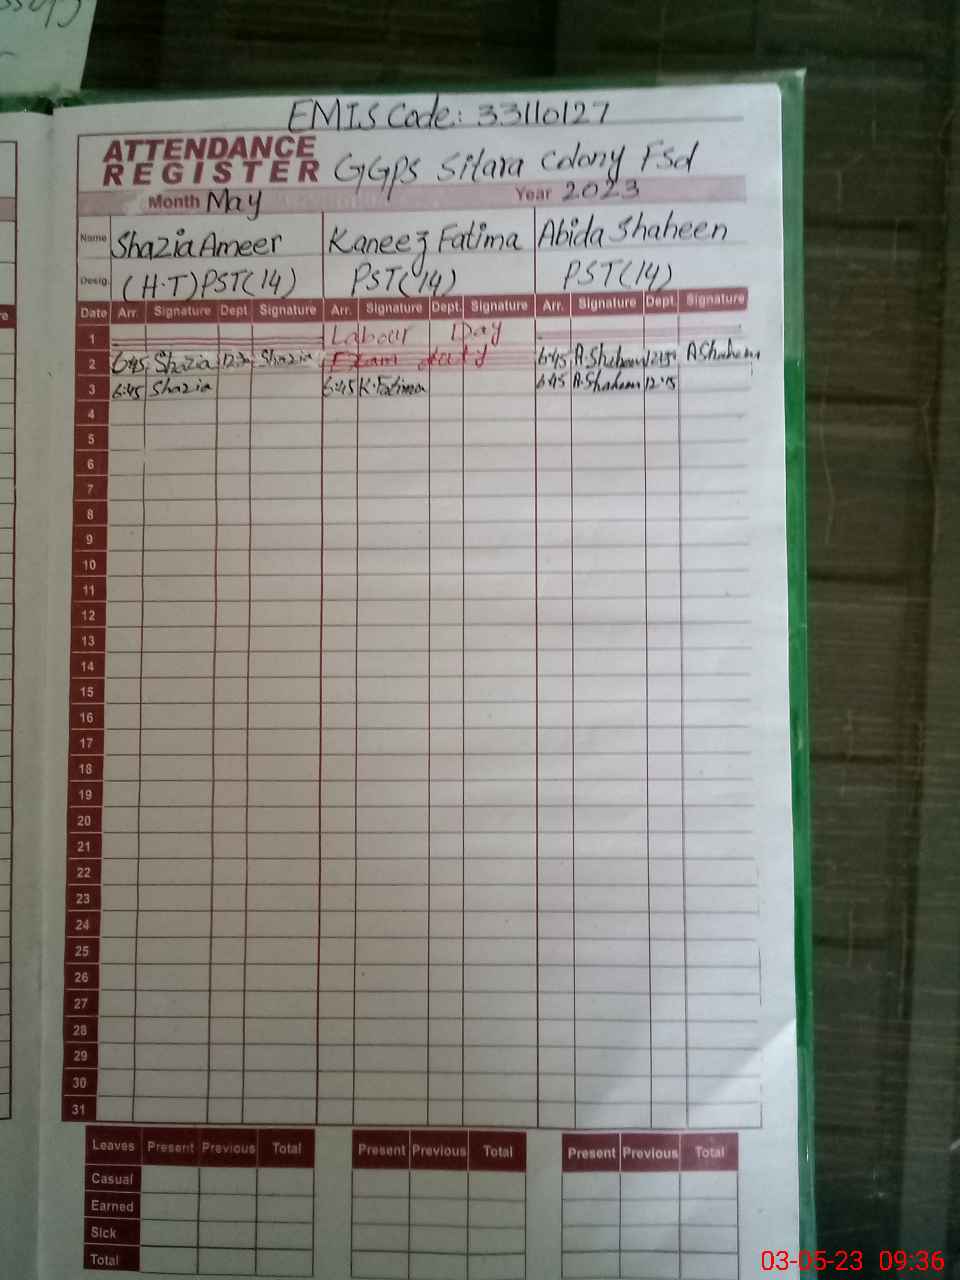 EMIS Code: 33110127
ATTENDANCE
REGISTER GGPS Sitara Colony Fsd
Month May Year 2023
Name Shazia Ameer Kaneez Fatima Abida Shaheen
Desig. (H.T) PST(14) PST(14) PST(14)
Date Arr. Signature Dept. Signature Arr. Signature Dept. Signature Arr. Signature Dept. Signature
1 Labour Day
2 6:45 Shazia 12:30 Shazia Exam duty 6:45 A.Shaheen A Shaheen
3 6:45 Shazia 6:45 K.Fatima 6:45 A.Shaheen 12:15
4
5
6
7
8
9
10
11
12
13
14
15
16
17
18
19
20
21
22
23
24
25
26
27
28
29
30
31
Leaves Present Previous Total Present Previous Total Present Previous Total
Casual
Earned
Sick
Total
03-05-23 09:36